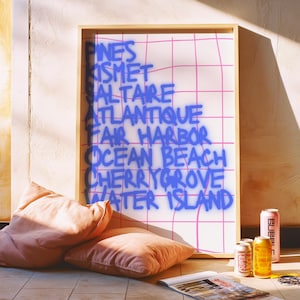 PINES
KISMET
SALTAIRE
ATLANTIQUE
FAIR HARBOR
OCEAN BEACH
CHERRY GROVE
WATER ISLAND